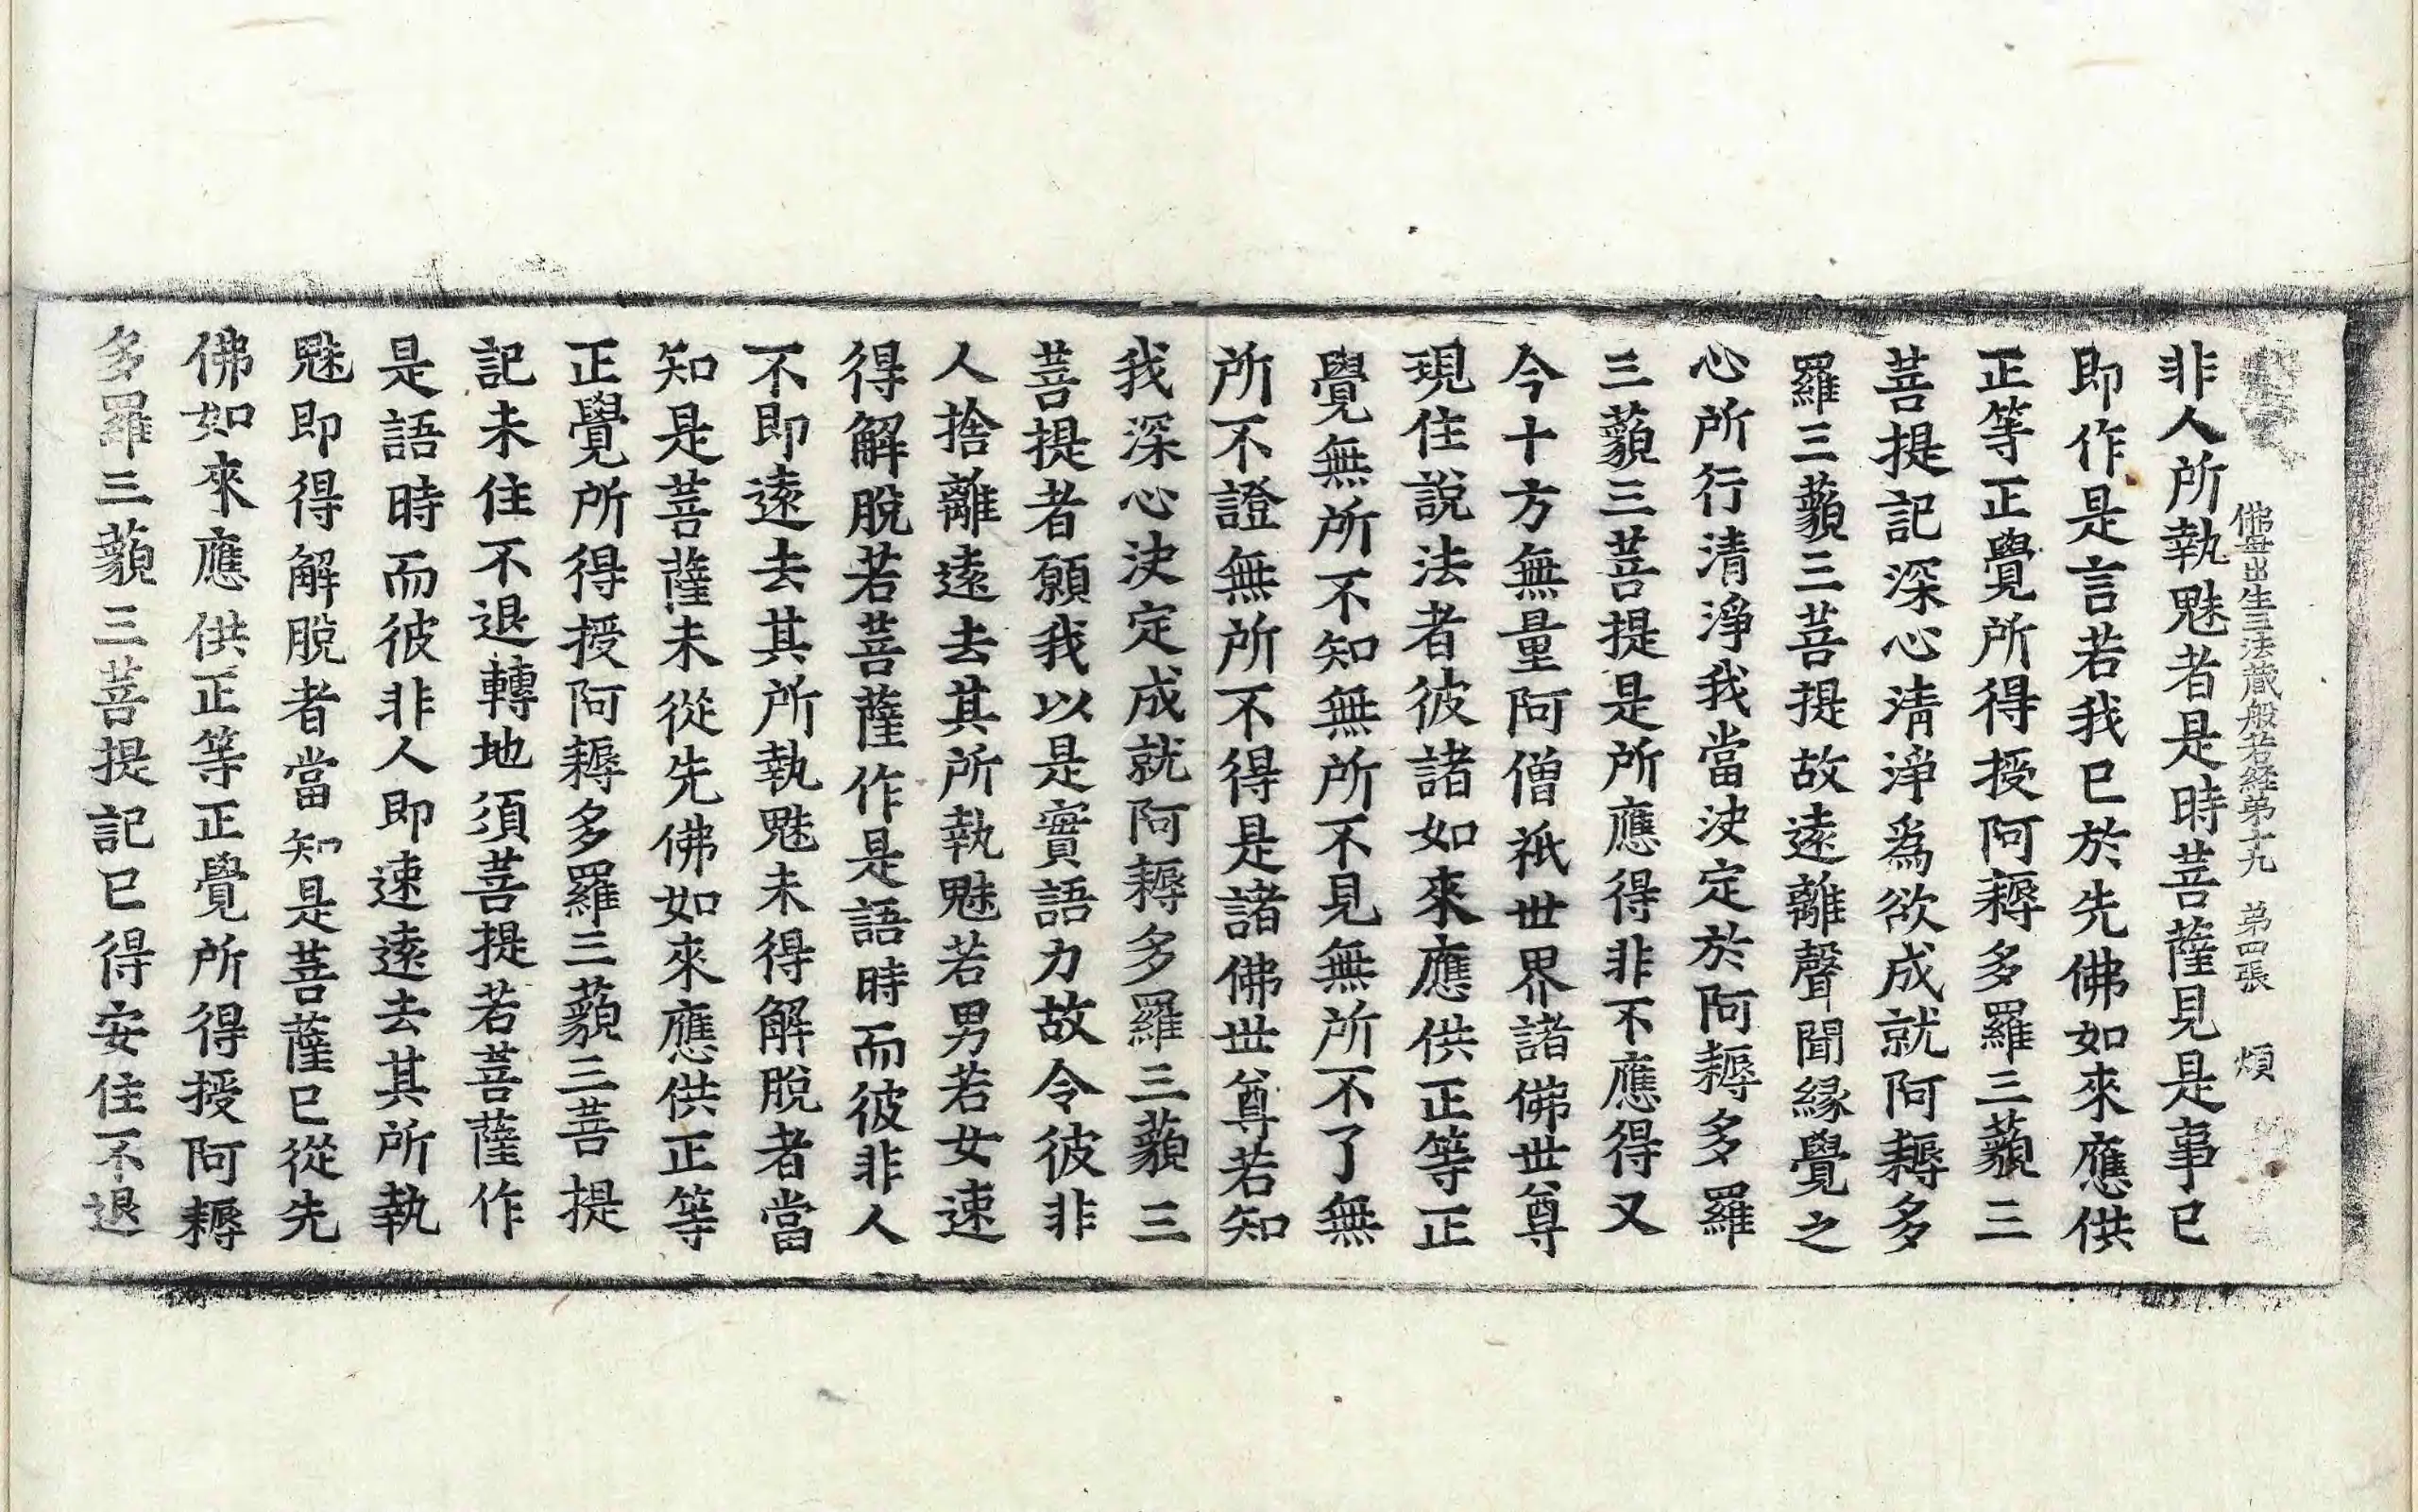 佛母出生三法蔵般若経第十九 第四張 煩
非人所執魅者是時菩薩見是事已
即作是言若我已於先佛如來應供
正等正覺所得授阿耨多羅三藐三
菩提記深心清淨爲欲成就阿耨多
羅三藐三菩提故遠離聲聞縁覺之
心所行清淨我當決定於阿耨多羅
三藐三菩提是所應得非不應得又
今十方無量阿僧祇世界諸佛世尊
現住說法者彼諸如來應供正等正
覺無所不知無所不見無所不了無
所不證無所不得是諸佛世尊若知
我深心決定成就阿耨多羅三藐三
菩提者願我以是實語力故令彼非
人捨離遠去其所執魅若男若女速
得解脫若菩薩作是語時而彼非人
不即遠去其所執魅未得解脫者當
知是菩薩未從先佛如來應供正等
正覺所得授阿耨多羅三藐三菩提
記未住不退轉地須菩提若菩薩作
是語時而彼非人即速遠去其所執
魅即得解脫者當知是菩薩已從先
佛如來應供正等正覺所得授阿耨
多羅三藐三菩提記已得安住不退